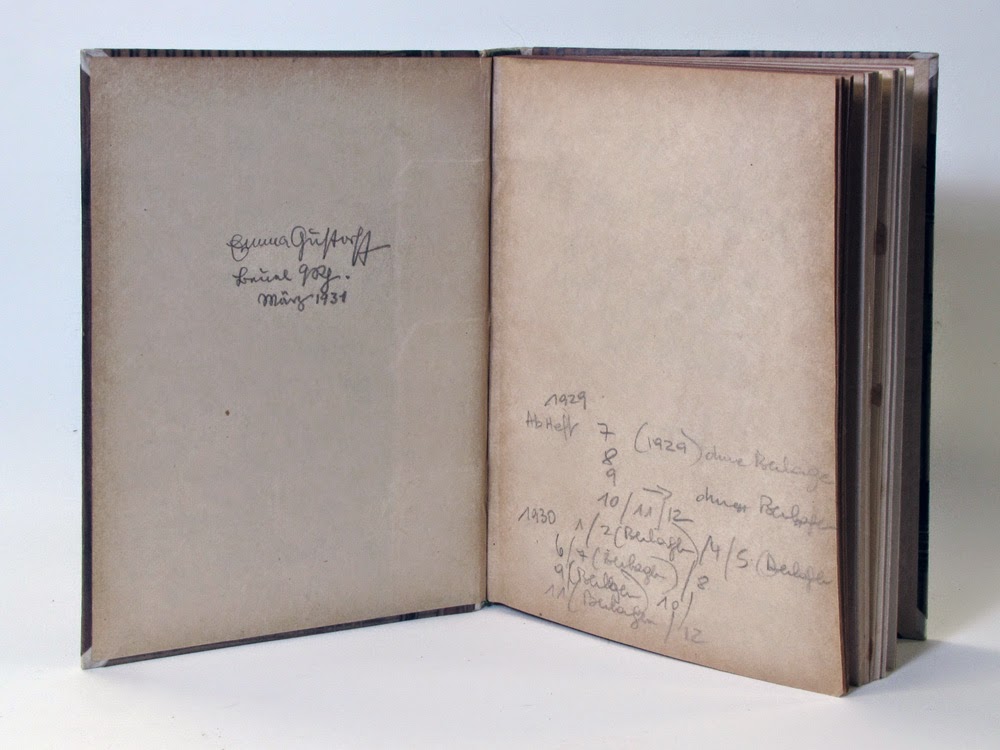 Emma Gustorff
Beuel
März 1931
1929
Ab Heft 7 (1929) ohne Beilage
8
9
10/11/12 → ohne Beilagen
1930 1/2 (Beilagen) /4/5 (Beilagen
6/7 (Beilagen) /8
9 (Beilagen) 10/
11 (Beilagen /12